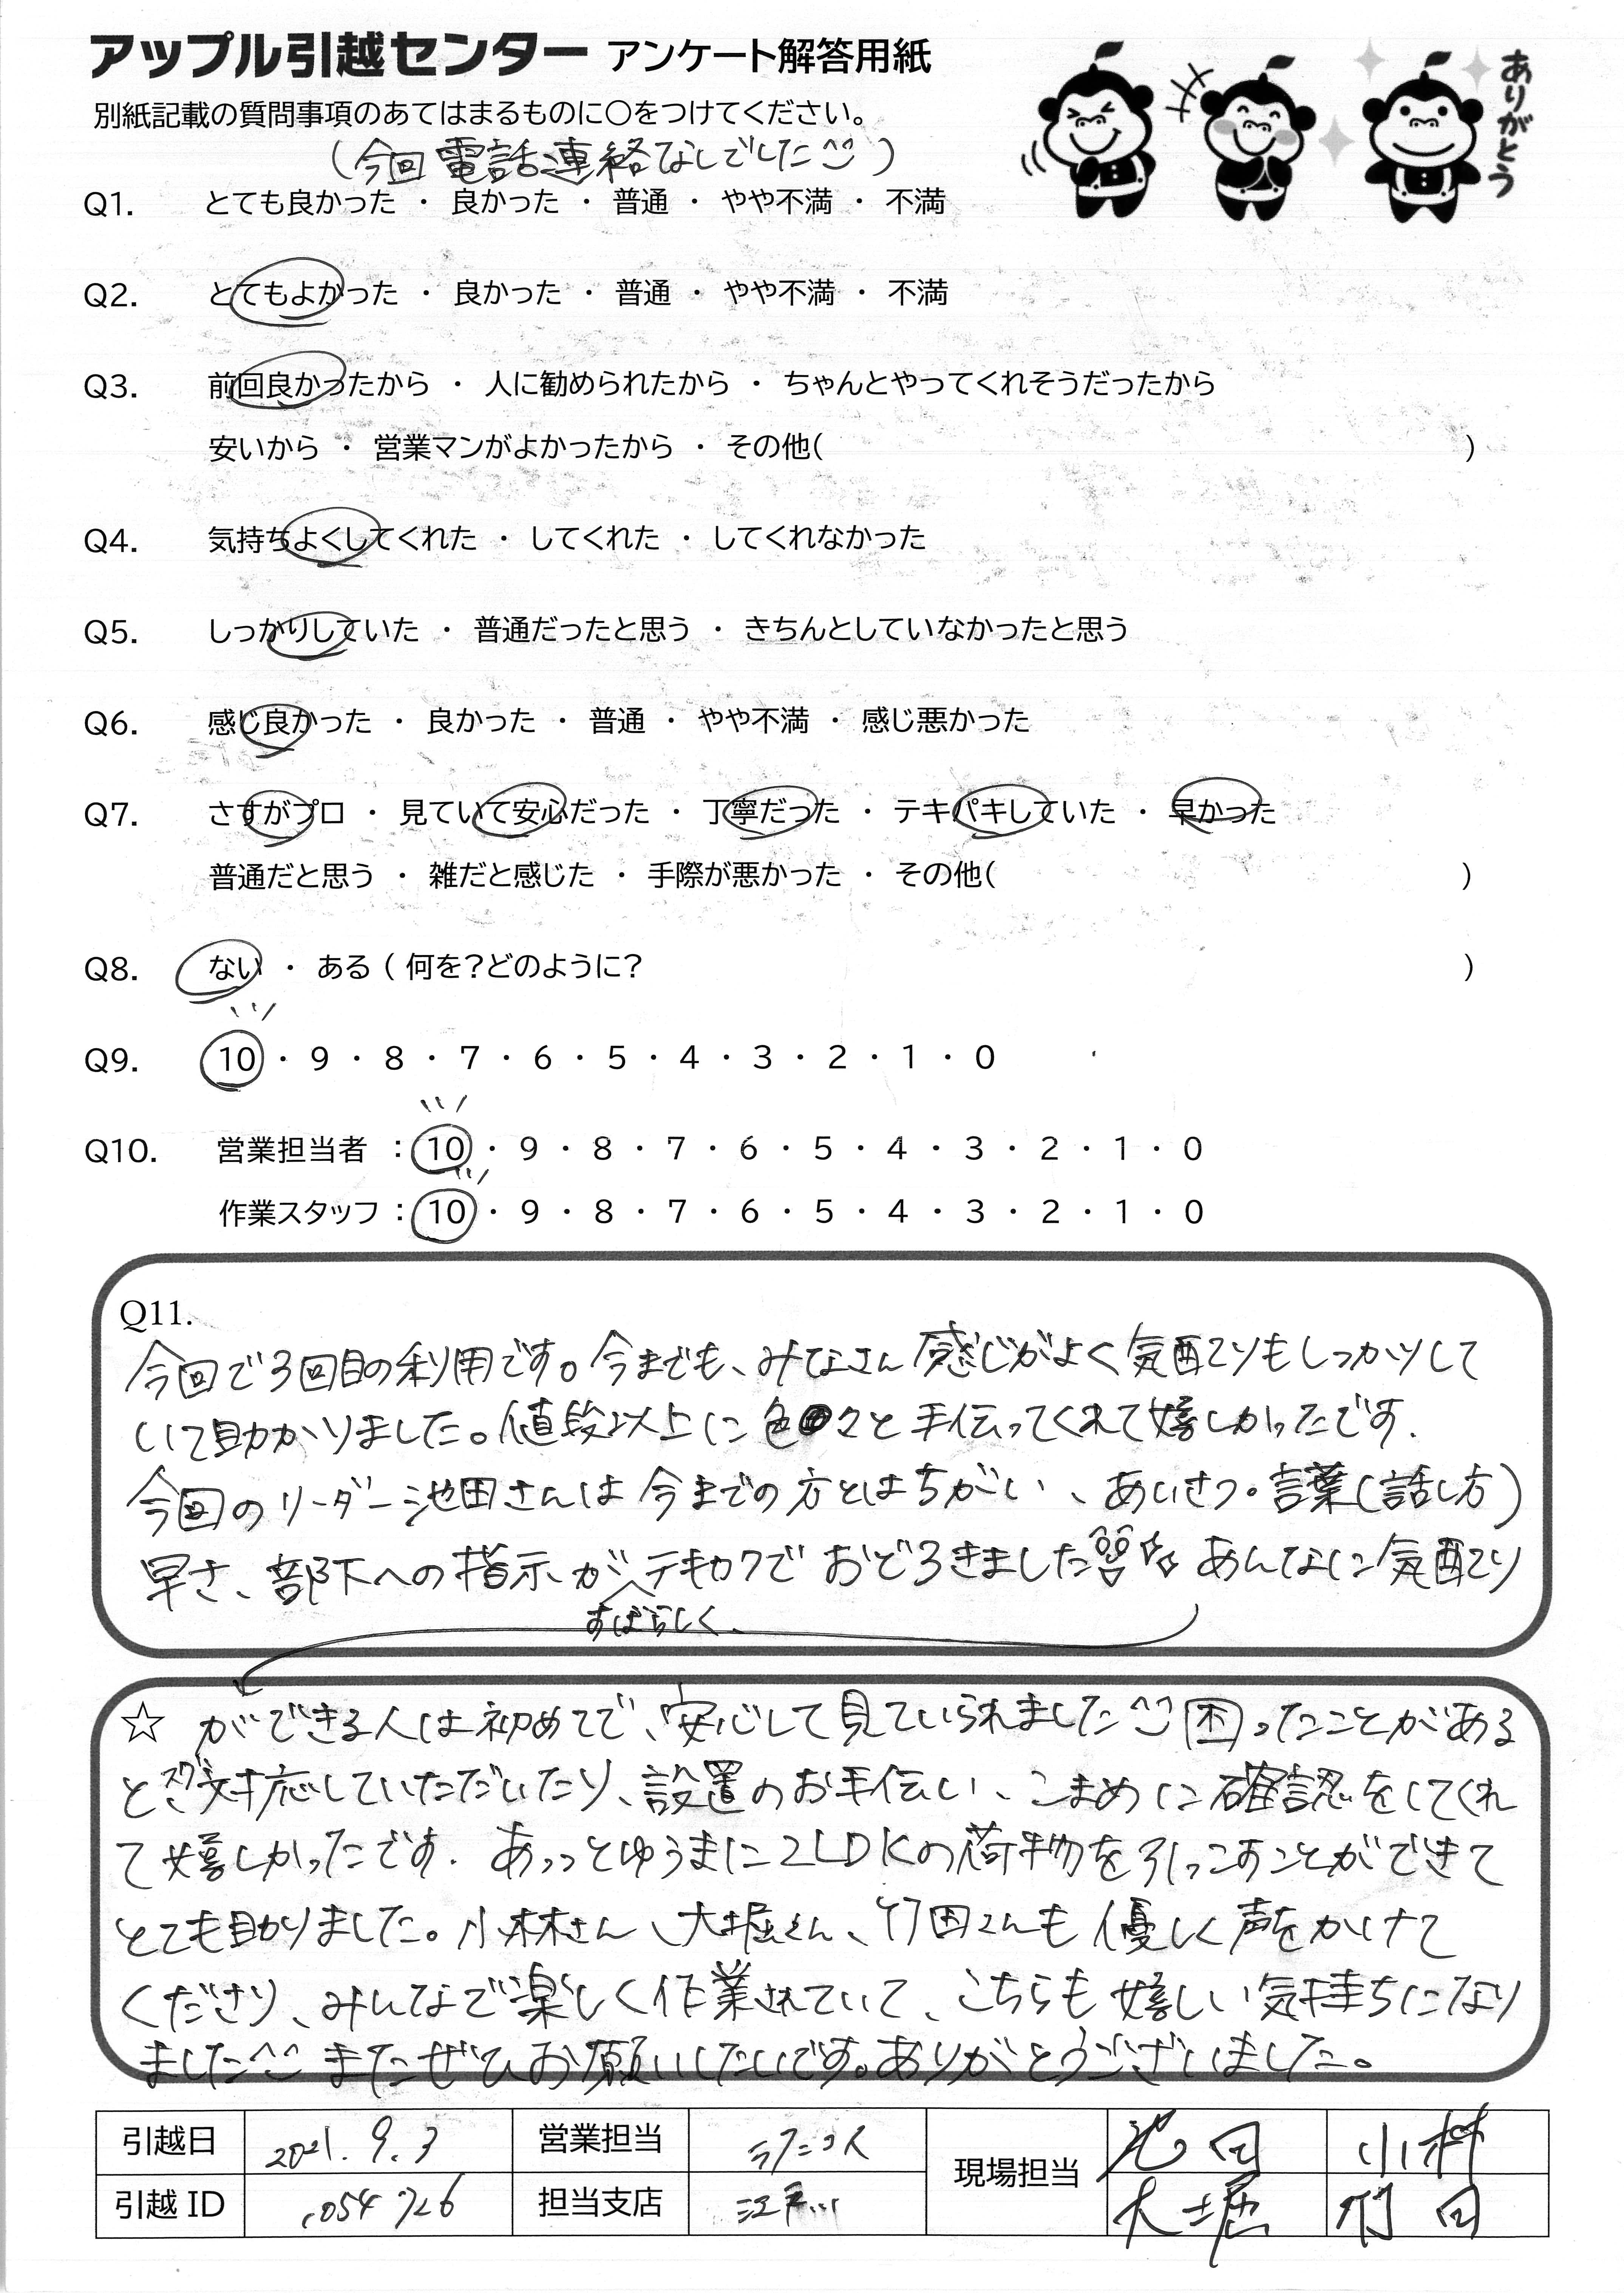 アップル引越センター アンケート解答用紙
ありがとう
別紙記載の質問事項のあてはまるものに○をつけてください。
(今回電話連絡なしでした^^)
Q1. とても良かった ・ 良かった ・ 普通 ・ やや不満 ・ 不満
Q2. とてもよかった ・ 良かった ・ 普通 ・ やや不満 ・ 不満
Q3. 前回良かったから ・ 人に勧められたから ・ ちゃんとやってくれそうだったから
安いから ・ 営業マンがよかったから ・ その他( )
Q4. 気持ちよくしてくれた ・ してくれた ・ してくれなかった
Q5. しっかりしていた ・ 普通だったと思う ・ きちんとしていなかったと思う
Q6. 感じ良かった ・ 良かった ・ 普通 ・ やや不満 ・ 感じ悪かった
Q7. さすがプロ ・ 見ていて安心だった ・ 丁寧だった ・ テキパキしていた ・ 早かった
普通だと思う ・ 雑だと感じた ・ 手際が悪かった ・ その他( )
Q8. ない ・ ある ( 何を?どのように? )
Q9. 10 ・ 9 ・ 8 ・ 7 ・ 6 ・ 5 ・ 4 ・ 3 ・ 2 ・ 1 ・ 0
Q10. 営業担当者 : 10 ・ 9 ・ 8 ・ 7 ・ 6 ・ 5 ・ 4 ・ 3 ・ 2 ・ 1 ・ 0
作業スタッフ : 10 ・ 9 ・ 8 ・ 7 ・ 6 ・ 5 ・ 4 ・ 3 ・ 2 ・ 1 ・ 0
Q11.
今回で3回目の利用です。今までも、みなさん感じがよく気配りもしっかりして
いて助かりました。値段以上に色々と手伝ってくれて嬉しかったです.
今回のリーダー池田さんは今までの方とはちがい、あいさつ・言葉(話し方)
早さ、部下への指示がテキカクでおどろきました あんなに気配り
すばらしく、
☆ ができる人は初めてで、安心して見ていられました^^ 困ったことがある
とスグ対応していただいたり、設置のお手伝い、こまめに確認をしてくれ
て嬉しかったです. あっっとゆうまに2LDKの荷物を引っこすことができて
とても助りました。小林さん、大堀くん、竹田くんも優しく声をかけて
くださり、みんなで楽しく作業されていて、こちらも嬉しい気持ちになり
ました^^ またぜひお願いしたいです。ありがとうございました。
引越日 2021. 9. 3 営業担当 現場担当 池田 小林
引越 ID 担当支店 江戸川 大堀 竹田